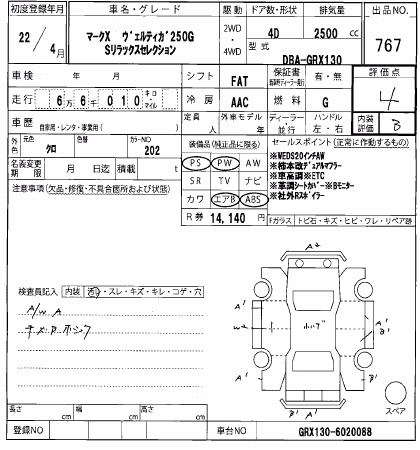 初度登録年月 車名・グレード 駆動 ドア数・形状 排気量 出品NO.
22/4月 マークX ヴェルティガ250G 2WD・4WD 4D 2500cc 767
Sリラックスセレクション 型式 DBA-GRX130
車検 年 月 シフト FAT 保証書 有・無 評価点
走行 6万6千010 キロ・マイル 冷房 AAC 燃料 G 4
車歴 自家用・レンタ・事業用( ) 定員 人 外車モデル 年 ディーラー・並行 ハンドル 左・右 内装評価 B
外色 元色 クロ 色替 カラーNO 202 装備品(純正品に限る) セールスポイント(正常に作動するもの)
名義変更期限 月 日迄 積載 t PS PW AW
注意事項(欠品・修復・不具合箇所および状態) SR TV ナビ
カワ エアB ABS
R券 14,140 円
※WEDS20インチAW
※柿本改デュアルマフラー
※車高調※ETC
※革調シートカバー※Bモニター
※社外Rスポイラー
Fガラス トビ石・キズ・ヒビ・ワレ・リペア跡
検査員記入 内装 汚・スレ・キズ・キレ・コゲ・穴
A/W A
A2
A' A'
A' B
A' B'
A' B'
スペア
長さ cm 幅 cm 高さ cm
登録NO 車台NO GRX130-6020088